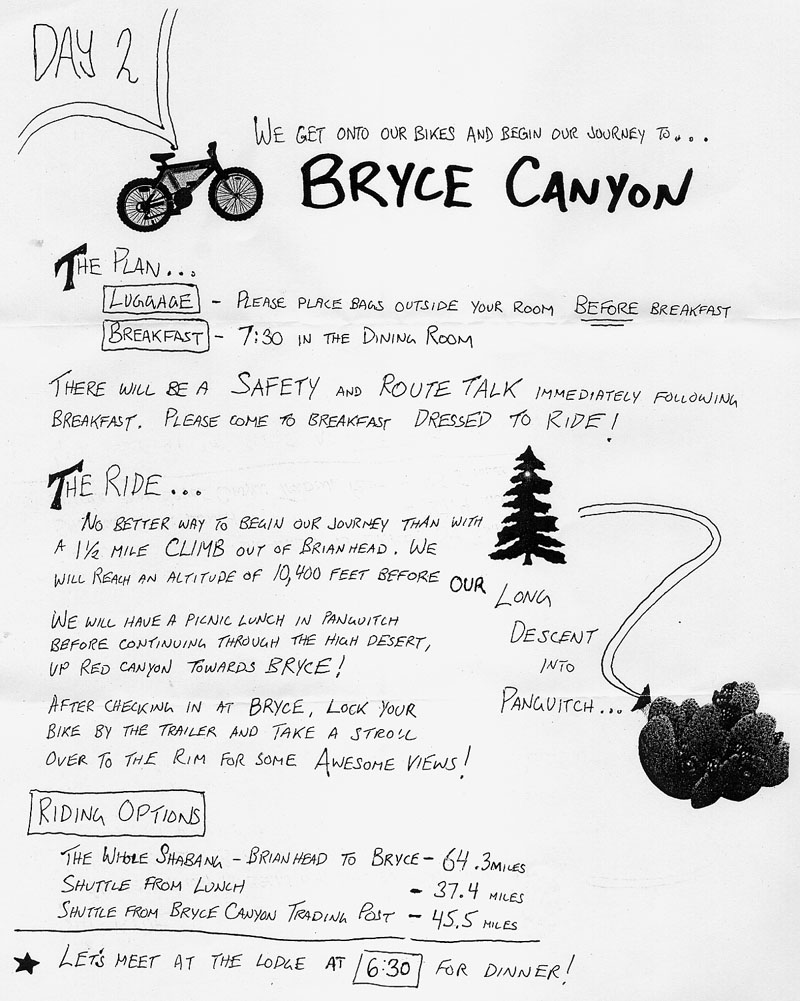 DAY 2
WE GET ONTO OUR BIKES AND BEGIN OUR JOURNEY TO...
BRYCE CANYON
THE PLAN...
LUGGAGE - PLEASE PLACE BAGS OUTSIDE YOUR ROOM BEFORE BREAKFAST
BREAKFAST - 7:30 IN THE DINING ROOM
THERE WILL BE A SAFETY AND ROUTE TALK IMMEDIATELY FOLLOWING
BREAKFAST. PLEASE COME TO BREAKFAST DRESSED TO RIDE!
THE RIDE...
NO BETTER WAY TO BEGIN OUR JOURNEY THAN WITH
A 1 1/2 MILE CLIMB OUT OF BRIANHEAD. WE
WILL REACH AN ALTITUDE OF 10,400 FEET BEFORE OUR
LONG
DESCENT
INTO
PANGUITCH...
WE WILL HAVE A PICNIC LUNCH IN PANGUITCH
BEFORE CONTINUING THROUGH THE HIGH DESERT,
UP RED CANYON TOWARDS BRYCE!
AFTER CHECKING IN AT BRYCE, LOCK YOUR
BIKE BY THE TRAILER AND TAKE A STROLL
OVER TO THE RIM FOR SOME AWESOME VIEWS!
RIDING OPTIONS
THE WHOLE SHABANG - BRIANHEAD TO BRYCE - 64.3 MILES
SHUTTLE FROM LUNCH - 37.4 MILES
SHUTTLE FROM BRYCE CANYON TRADING POST - 45.5 MILES
LET'S MEET AT THE LODGE AT 6:30 FOR DINNER!